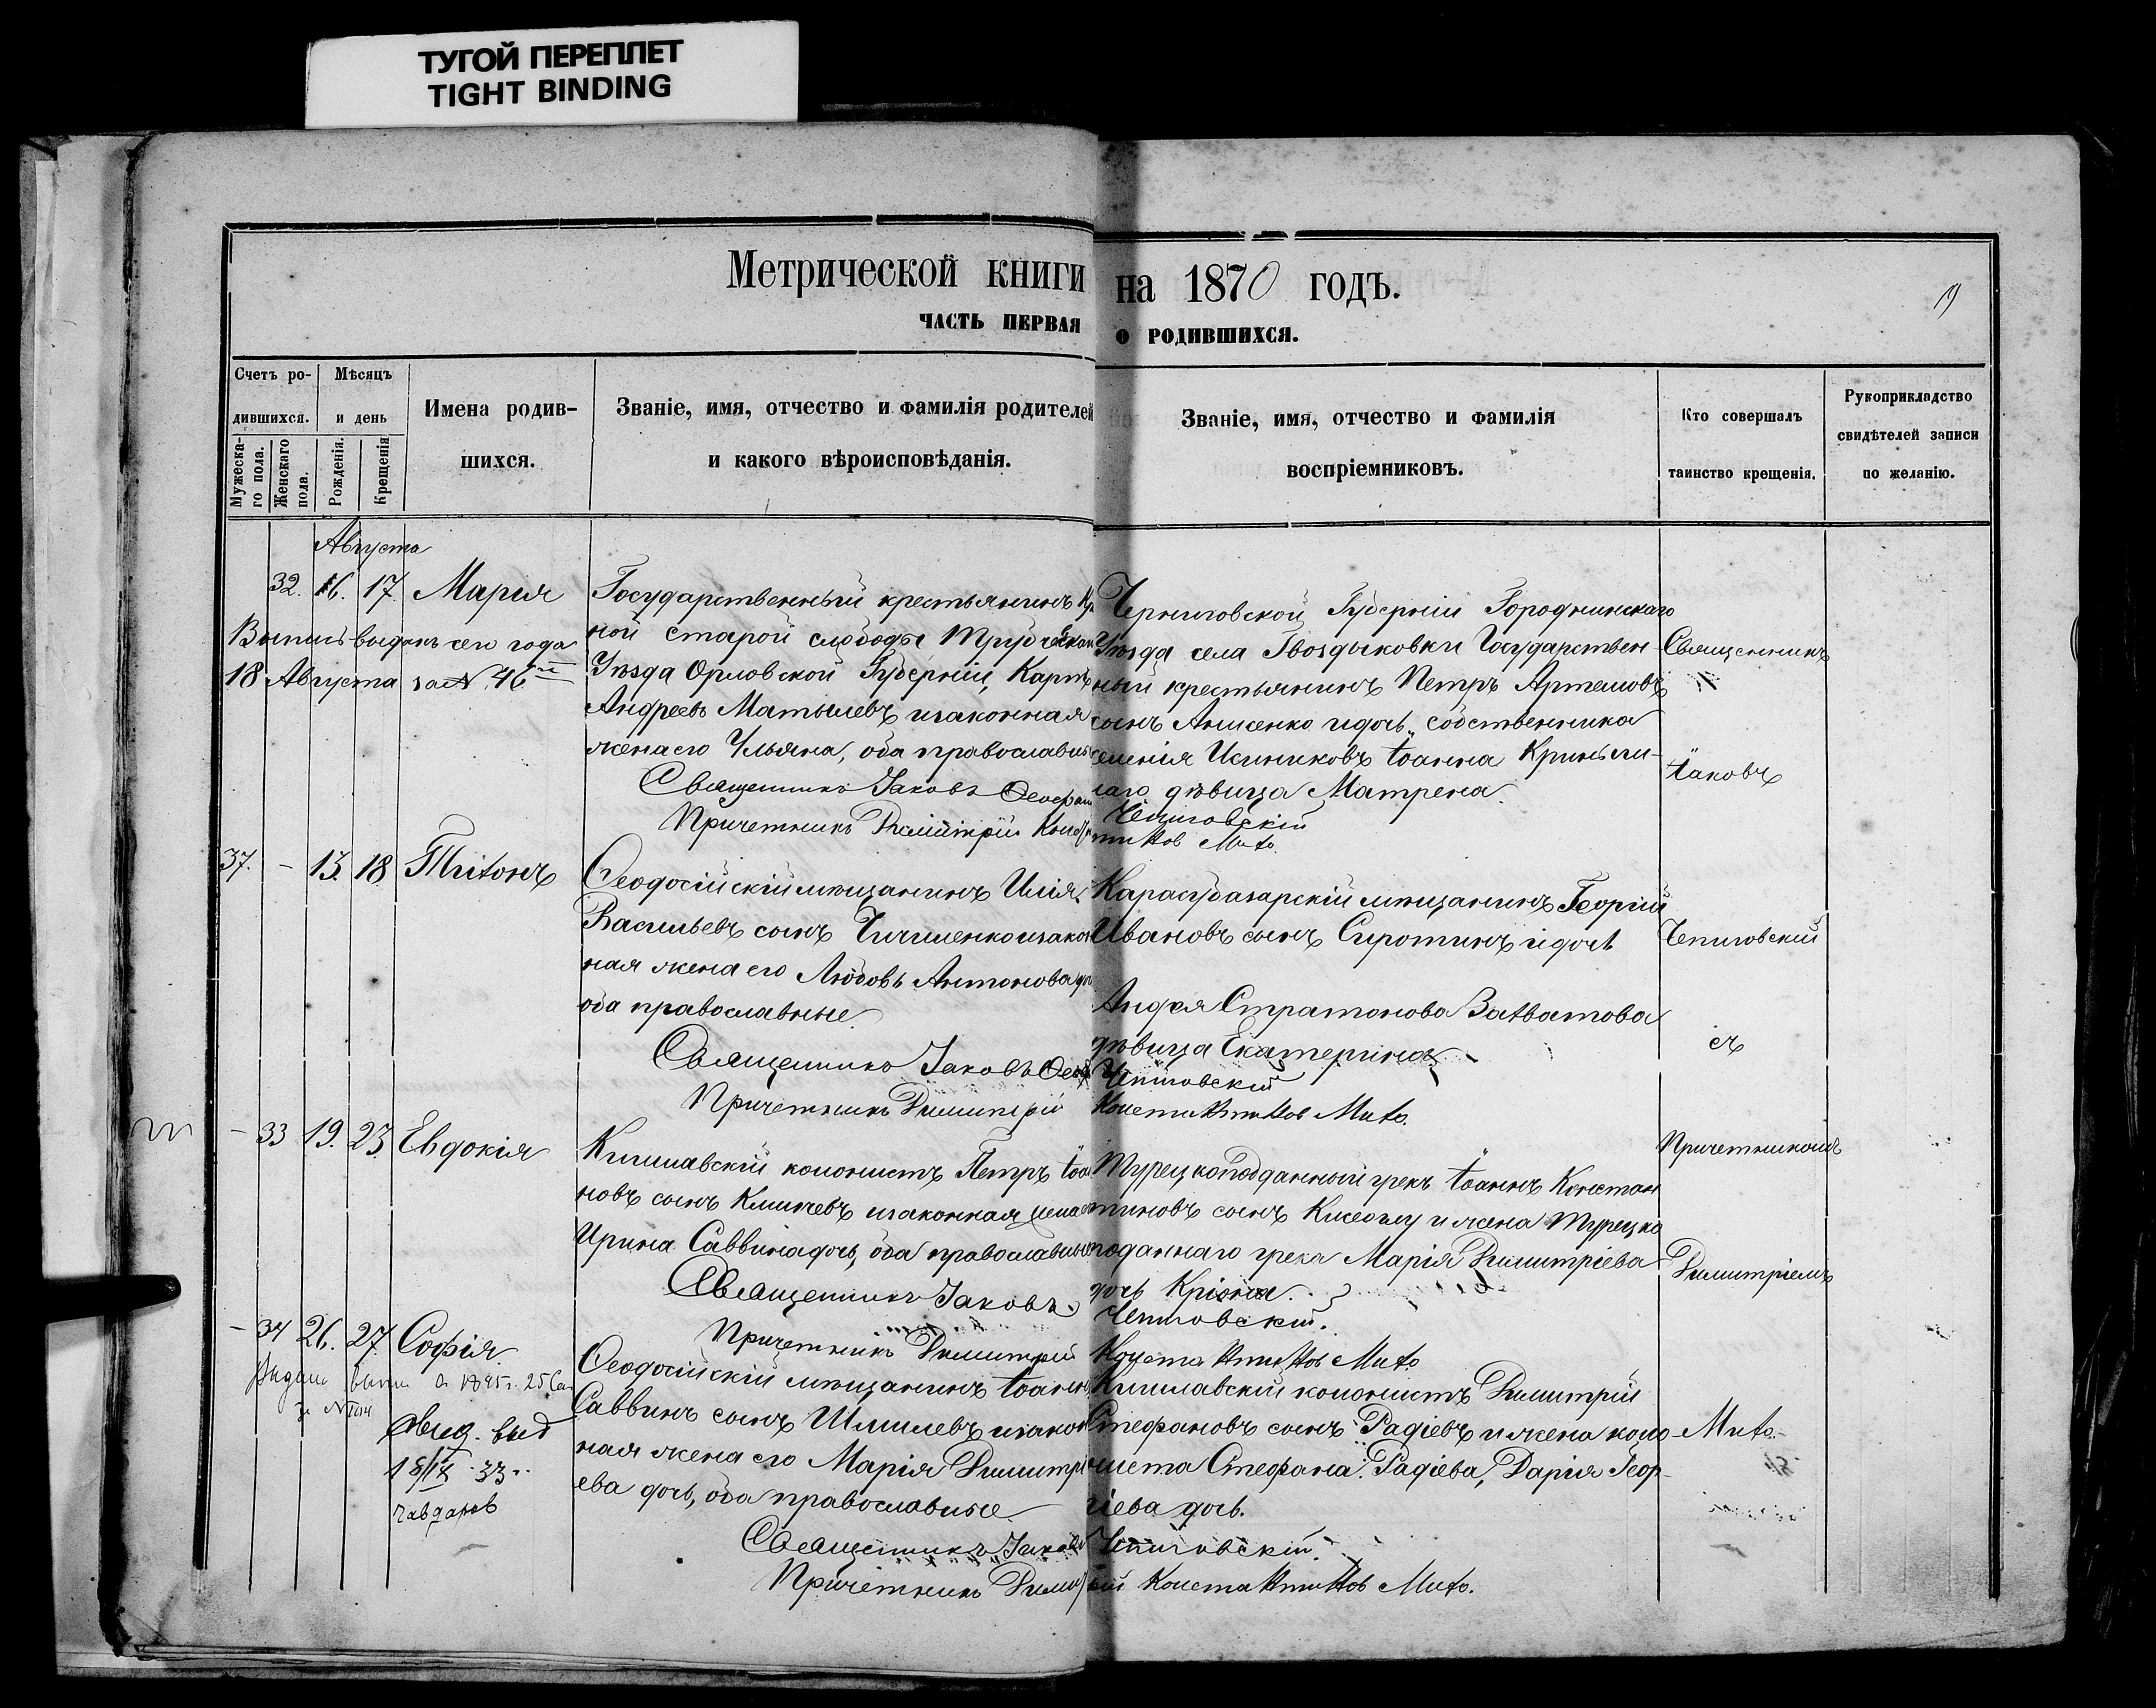 ТУГОЙ ПЕРЕПЛЕТ
TIGHT BINDING
Метрической книги на 1870 годъ.
19
ЧАСТЬ ПЕРВАЯ О РОДИВШИХСЯ.
Счетъ ро-
дившихся.
Мужеска-
го пола.
Женскаго
пола.
Мѣсяцъ
и день
Рожденія.
Крещенія
Имена родив-
шихся.
Званіе, имя, отчество и фамилія родителей
и какого вѣроисповѣданія.
Званіе, имя, отчество и фамилія
воспріемниковъ.
Кто совершалъ
таинство крещенія.
Рукоприкладство
свидѣтелей записи
по желанію.
Августа
32. 16. 17. Марія
Выпись выданъ сего года
18 Августа за № 46
Государственный крестьянинъ
ной старой слободы Трубчевскаго
Уѣзда Орловской Губерніи, Карпъ
Андреевъ Матылевъ изаконная
жена его Ульяна, оба православные
Священникъ Іаковъ
Причетникъ Димитрій
Черниговской Губерніи Городнинскаго
Уѣзда села Гвоздиковки Государствен-
ный крестьянинъ Петръ Артемовъ
сынъ Анисенко идочь собственника
Іоанна
дѣвица Матрена.
Чепиговскій
Мито
Священникъ
Іаковъ
37. - 13. 18. Тихонъ
Феодосійскій мѣщанинъ Илія
Васильевъ сынъ Чичиленко изакон
ная жена его Любовь Антонова
оба православные.
Священникъ Іаковъ
Причетникъ Димитрій
Карасубазарскій мѣщанинъ Георгій
Ивановъ сынъ Сиротинъ идочь
Андрея Стратонова
дѣвица Екатерина
Чепиговскій
Константиновъ Мито.
Чепиговскій
съ
- 33 19. 23. Евдокія
Кишлавскій колонистъ Петръ Іоан
новъ сынъ Климчевъ изаконная жена
Ирина Саввина дочь, оба православные
Священникъ Іаковъ
Причетникъ Димитрій
Турецкоподданный грекъ Іоаннъ Констан
тиновъ сынъ и жена Турецко
поданнаго грека Марія Димитріева
дочь
Чепиговскій.
Константиновъ Мито
Причетникомъ
Димитріемъ
- 34 26. 27. Софія.
1895 г. 25
Свид. выд
18/IX 33 г.
Чавдаров
Феодосійскій мѣщанинъ Іоаннъ
Саввинъ сынъ Шлилевъ изакон
ная жена его Марія Димитрі
ева дочь, оба православные
Священникъ Іаковъ
Причетникъ
Кишлавскій колонистъ Димитрій
Стефановъ сынъ Радіевъ и жена коло-
ниста Стефана Радіева, Дарія Геор-
гіева дочь.
Чепиговскій.
Константиновъ Мито.
Мито.